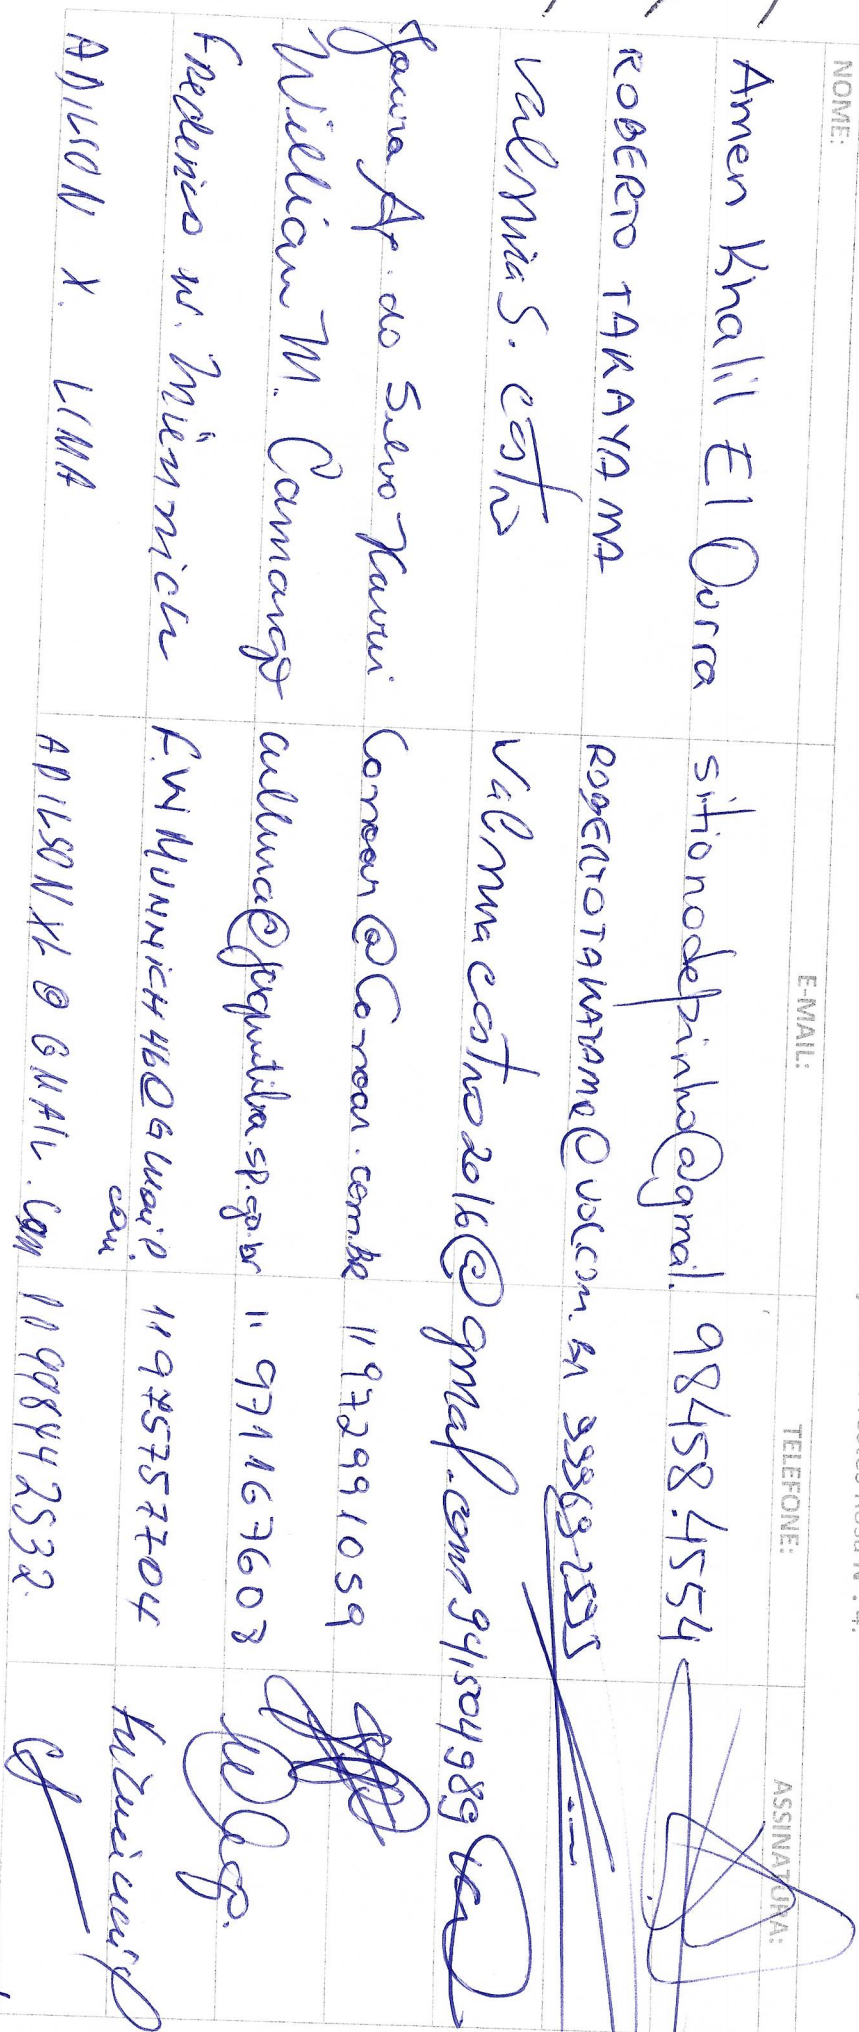 NOME: E-MAIL: TELEFONE: ASSINATURA:
Amen Khalil El Ourra sitionodepinho@gmail. 98458.4554
ROBERTO TAKAYAMA ROBERTOTAKAYAMA@UOL.COM.BR 99969-2535
Valmira S. Costa valmiracosta2016@gmail.com 941504989
Ap. da Silva 11 972991059
William M. Camargo cultura@juquitiba.sp.gov.br 11 971167608
Frederico W. FWMUNNICH46@Gmail.com 11975757704
ADILSON X. LIMA ADILSONXL@GMAIL.Com 11998442532.